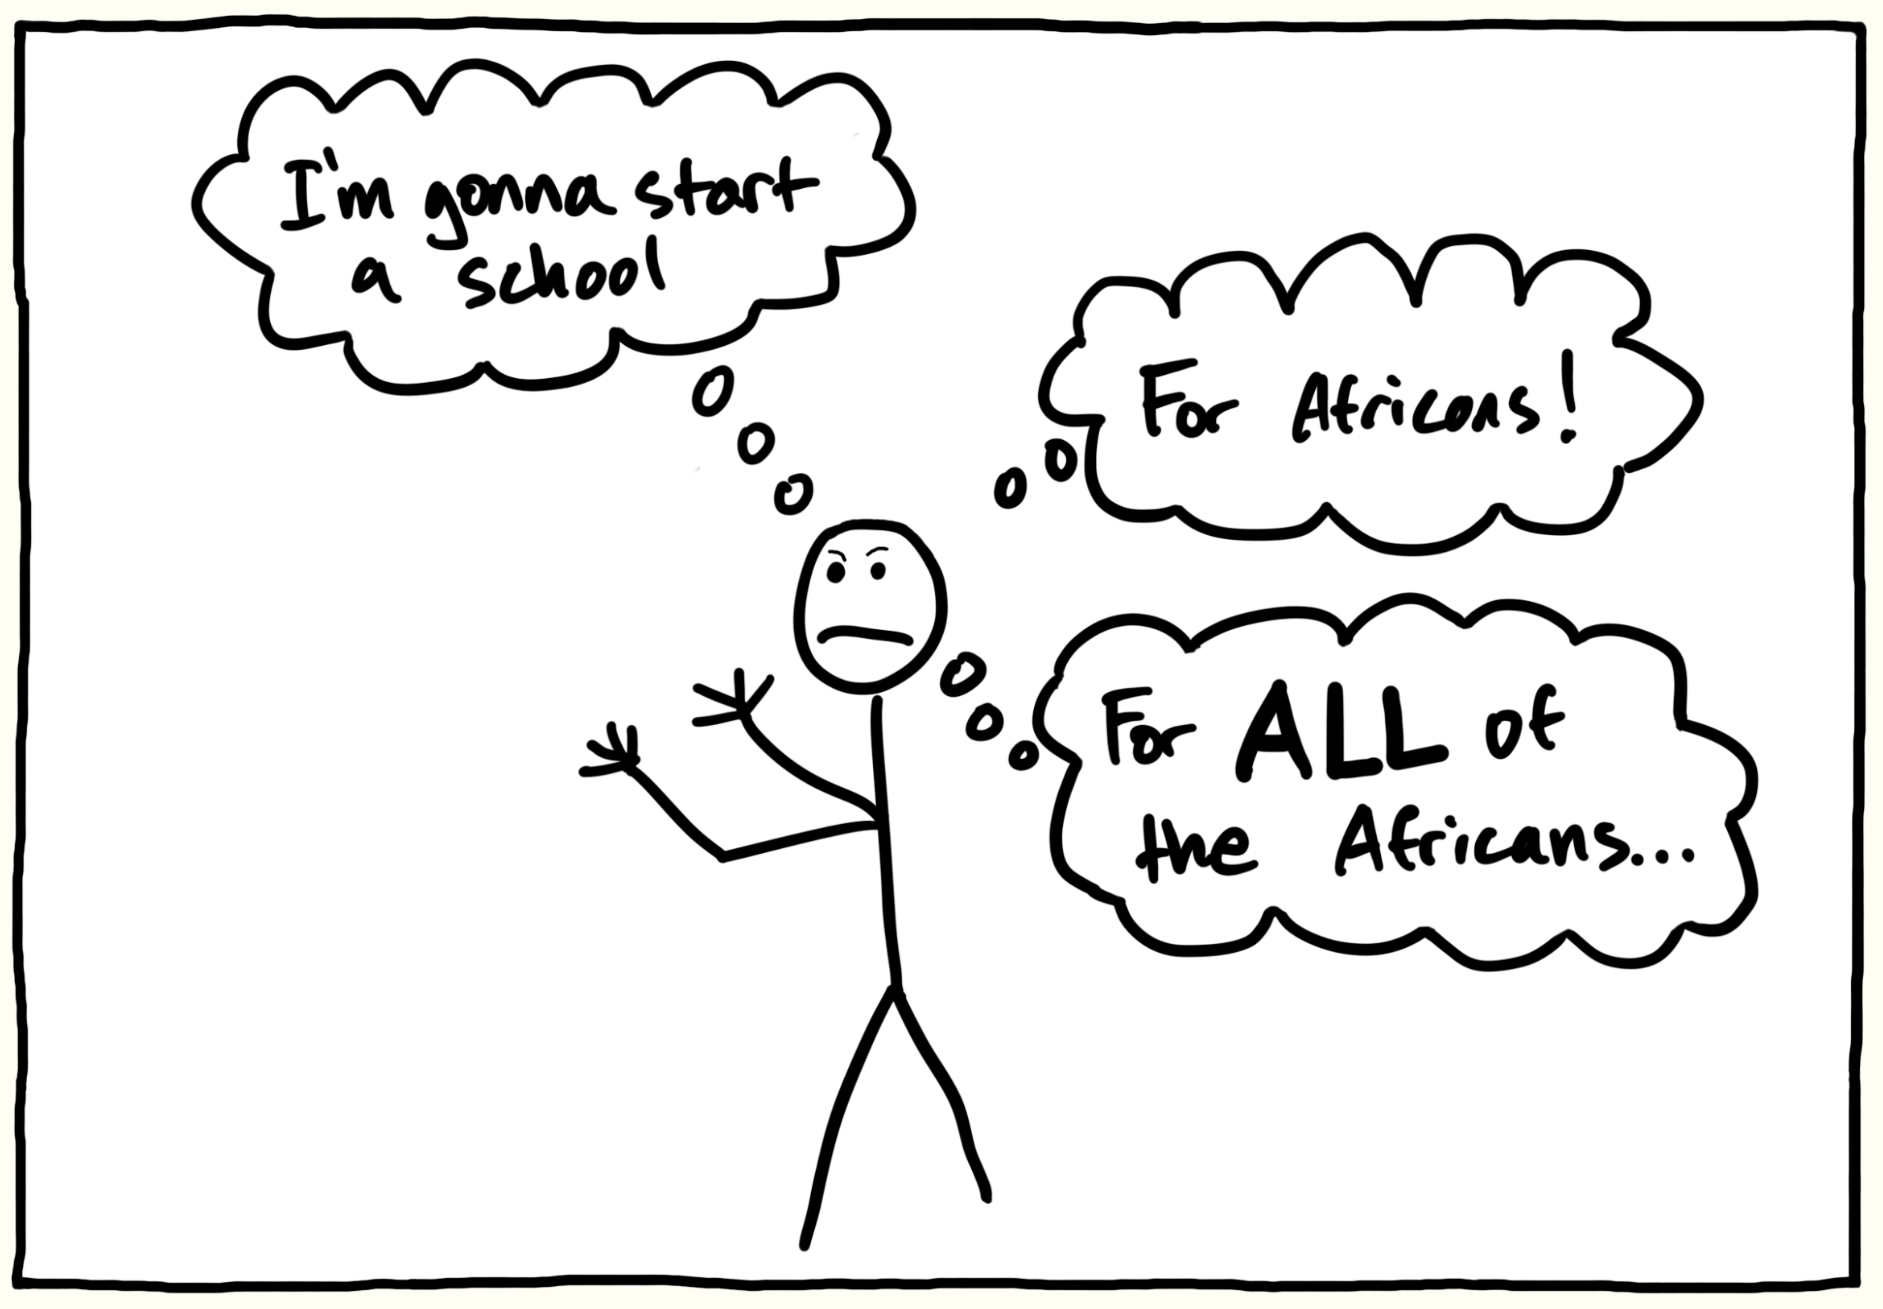 I'm gonna start
a school
For Africans!
For ALL of
the Africans...